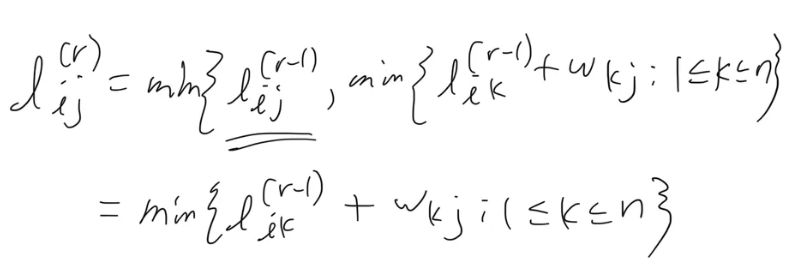 l_{ij}^{(r)} = min{ l_{ij}^{(r-1)}, min{ l_{ik}^{(r-1)} + w_{kj} : 1 ≤ k ≤ n }
= min{ l_{ik}^{(r-1)} + w_{kj} : 1 ≤ k ≤ n }